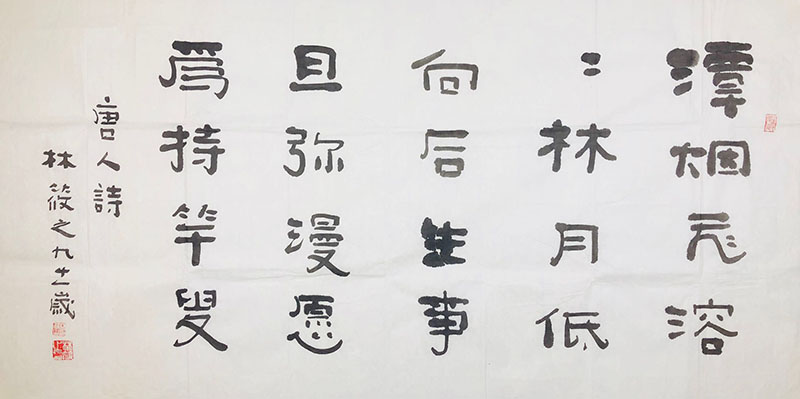 潭烟飞溶
〻林月低
向后生事
且弥漫愿
為持竿叟
唐人詩
林筱之九十一歲